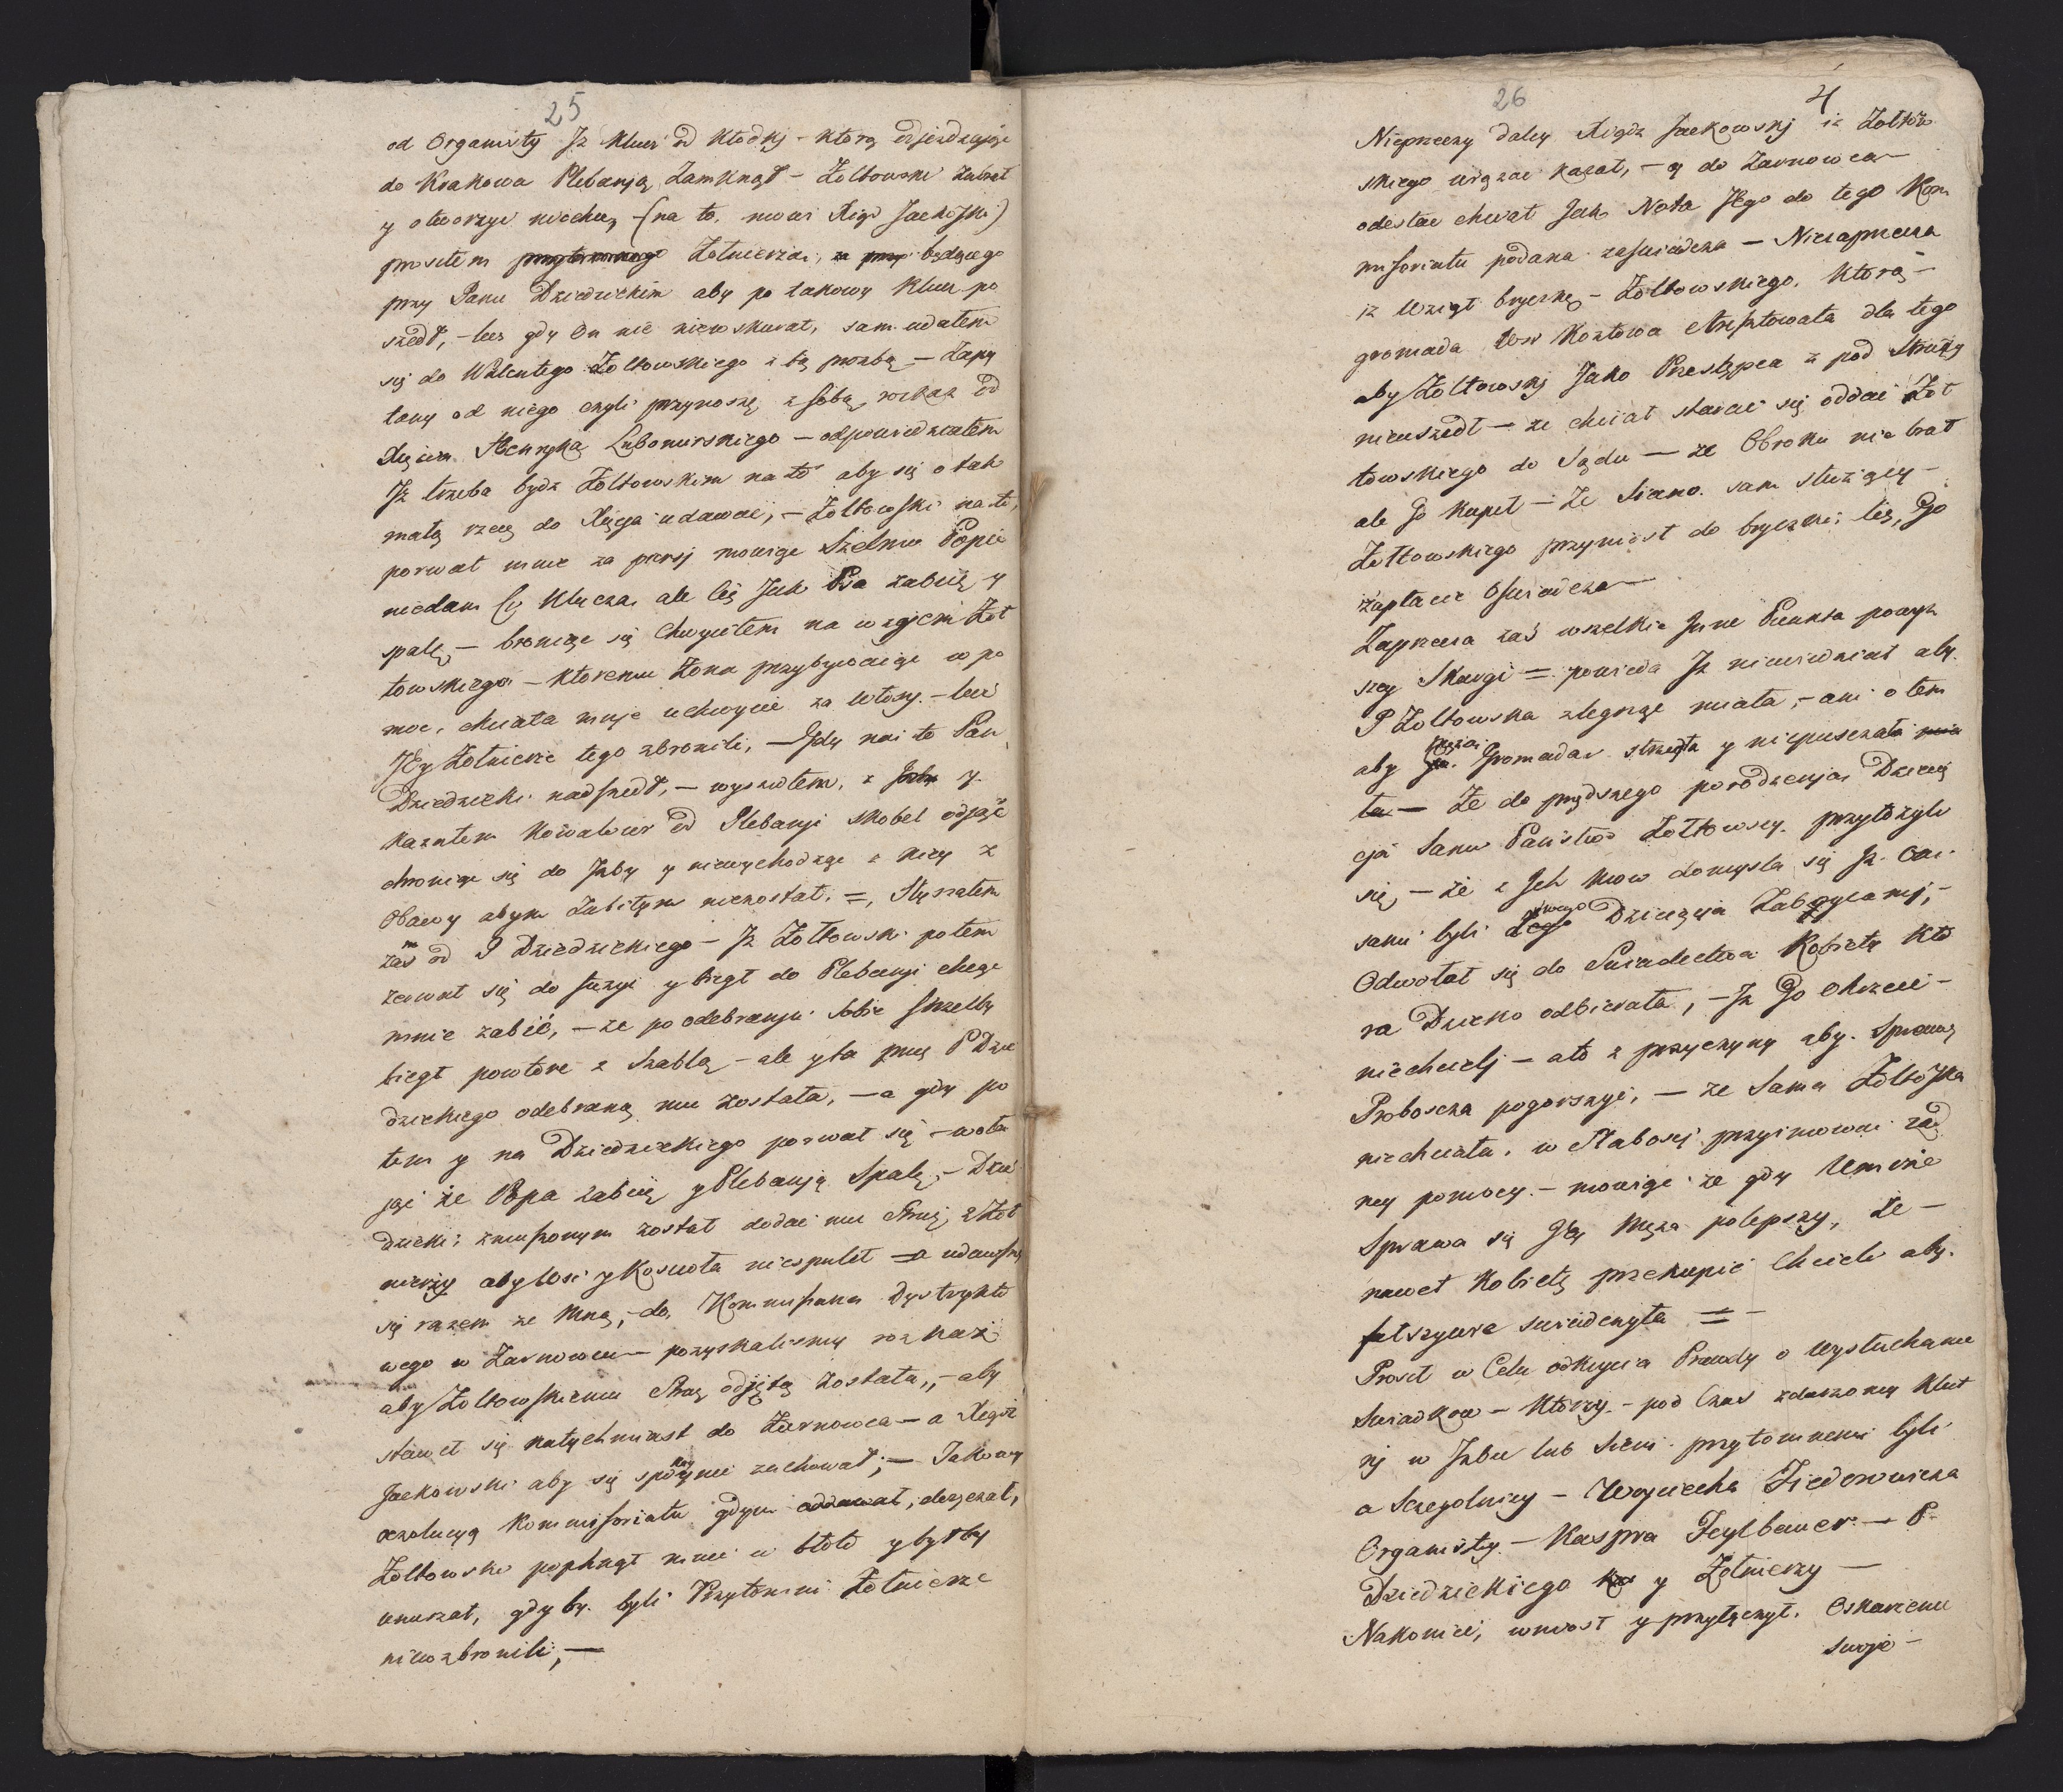 25
od Organisty Jz Klucz od Klodkj - ktorą odjezdzając
do Krakowa Plebanją Zamknął - Zołtowski Zabrał
y otworzyć niechce, - (na to, mowi Xiądz Jackowski)
prosiłem przytomnego Zołnierza, za przy będącego
przy Panu Dziedzickim aby po takowy Klucz po
szedł, - lecz gdy On nic niewskurał, sam udałem
się do Walentego Zołtowskiego z tą prozbą - Zapy
tany od niego czyli przynoszę z sobą rozkaz od
Xięcia Henryka Lubomirskiego - odpowiedziałem
Jz trzeba bydz Zołtowskim na to aby się o tak
małą rzecz do Xięcia udawać, - Zołtowski na to,
porwał mnie za piersj mowiąc Szelmo Popie
niedam Ci Klucza, ale Cię Jak Psa zabiję y
spalę, - broniąc się Chwyciłem na wzajem Zoł
towskiego - ktoremu Zona przybywając w po
moc, chciała mnie uchwycić za Włosy. - lecz
Jey Zołnierze tego zbronili, - Gdy na to Pan
Dziedzicki nadszedł, - wyszedłem, z Jzby y
kazałem Kowalowi od Plebanji skobel odjąć
chroniąc się do Jzby y niewychodząc z niey z
Obawy abym Zabitym niezostał. =, Słyszałem
zaś od P Dziedzickiego - Jz Zołtowski potem
zerwał się do fuzyi y biegł do Plebanji chcąc
mnie zabić, - ze po odebranju sobie strzelby
biegł powtore z Szablą - ale y ta przez P Dzie
dzickiego odebraną mu została, - a gdy po
tem y na Dziedzickiego porwał się - woła
jąc że Popa zabiję y Plebanją Spalę, - Dzie
dzicki; zmuszonym został dodać mu Straż z Zoł
nierzy aby Wsi y Kosciola niespalił - a udawszy
się razem ze Mną, - do Kommissarza Dystrykto
wego w Zarnowcu - pozyskalismy rozkaz
aby Zołtowskiemu Straz odjętą została, - aby
stawił się natychmiast do Zarnowca - a Xiądz
Jackowski aby się spokoynie zachował; - Takową
rezolucyą Kommissoriatu gdym oddawał, doręczał,
Zołtowski popchnął mnie w błoto y byłby
unurzał, gdyby byli Przytomni Zołnierze
niewzbronili; -
26
4
Nieprzeczy daley Xiądz Jackowskj iz Zołtow
skiego wiązac kazał, - y do Zarnowca -
odesłac chciał Jak Nota Jego do tego Kom
missoriatu podana zaswiadcza - Niezaprzecza
iz Wziął bryczkę - Zołtowskiego, Którą -
gromada Wsi Kozłowa Aresztowała dla tego
aby Zołtowskj Jako Przestępca z pod Strazy
nieuszedł - ze chciał starać się oddać Zoł
towskiego do Sądu - ze Obroku nie brał
ale Go kupił - Ze Siano sam słuzący -
Zołtowskiego przyniosł do bryczki; też, Go
zapłacic Oswiadcza -
Zaprzecza zaś wszelkie Jnne Punkta powyz
szey Skargi = powiada Jz niewiedział aby
P Zołtowska zlegnąc miała, - ani o tem
aby Ją. Gromada strzegła y niepuszczała
- Ze do prędszego porodzenja Dziecię
cja Sami Panstwo Zołtowscy przyłozyli
się - że z Jch Mow domysla się Jz Oni
sami byli swego Dziecięcia Zaboycamj, -
Odwołał się do Swiadectwa Kobiety Kto
ra Dziecko odbierała, - Jz Go Chrzcic -
niechcielj - ato z przyczyny aby Sprawę
Proboszcza pogorszyć, - ze Sama Zołtowska
niechciała, w Słabosci przyimować zad
ney pomocy. - mowiąc ze gdy Umrze
Sprawa się Jey Męza polepszy, Ze -
nawet Kobietę przekupić Chcieli aby
fałszywie swiadczyła = -
Prosił w Celu odkrycia Prawdy o Wysłuchanie
Swiadkow - Ktorzy - pod Czas zdarzoney Kłut
nj w Jzbie lub Sieni przytomnemi byli
a Szegolniey - Woyciecha Fiedorowicza
Organisty - Kaspra Feylbauer - P.
Dziedzickiego y Zołnierzy -
Nakoniec, wniosł y przyłączył. Oskarzenie
swoje -